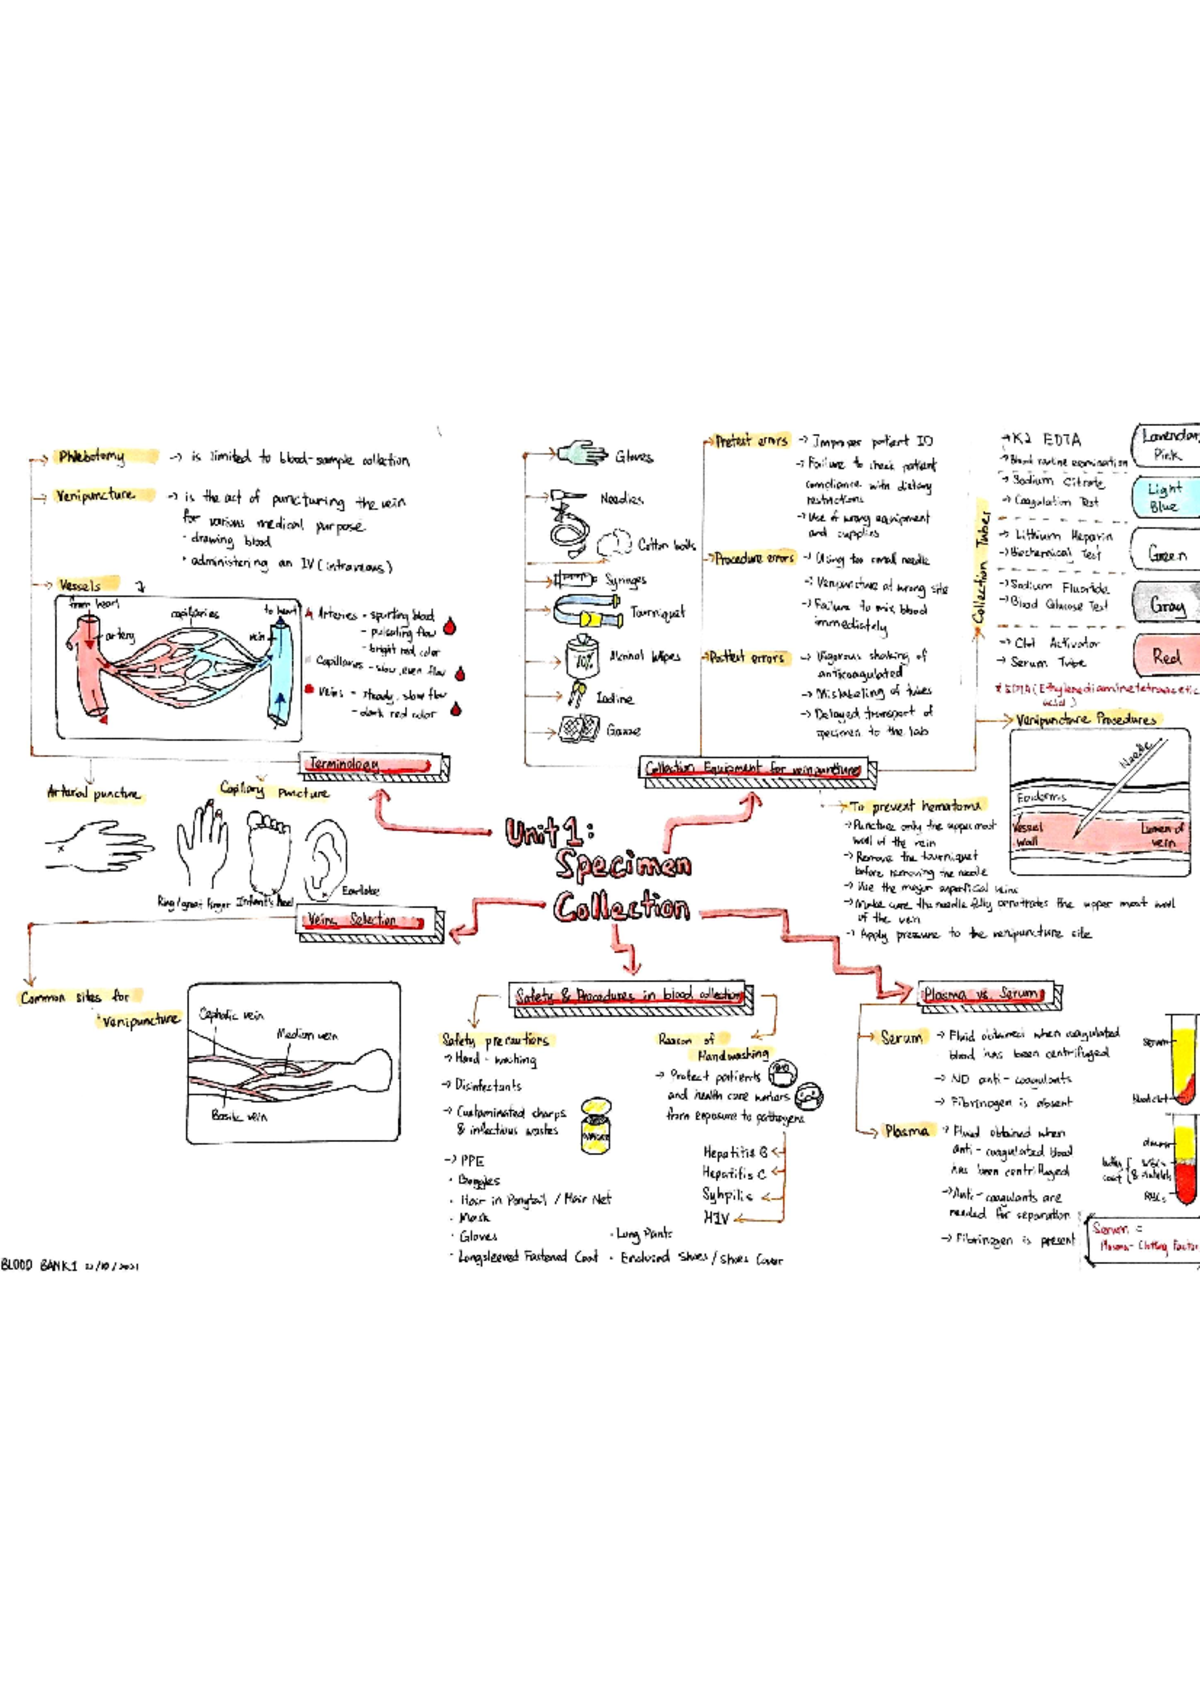 Phlebotomy → is limited to blood-sample collection
Venipuncture → is the act of puncturing the vein
for various medical purpose
· drawing blood
· administering an IV (intravenous)
Vessels
from heart
artery
capillaries
to heart
vein
Arteries - spurting blood
- pulsating flow
- bright red color
Capillaries - slow, even flow
Veins - steady, slow flow
- dark red color
Terminology
Arterial puncture
Capillary Puncture
Ring/great finger
Infant's heel
Earlobe
Gloves
Needles
Cotton balls
Syringes
Tourniquet
70%
Alcohol Wipes
Iodine
Gauze
Pretest errors → Improper patient ID
→ Failure to check patient
compliance with dietary
restrictions
→ Use of wrong equipment
and supplies
Procedure errors → Using too small needle
· Venipuncture at wrong site
→ Failure to mix blood
immediately
Posttest errors → Vigorous shaking of
anticoagulated
→ Mislabeling of tubes
→ Delayed transport of
specimen to the lab
Collection Equipment for venipuncture
Collection Tubes
→ K2 EDTA
→ Blood routine examination
Lavendar
Pink
→ Sodium Citrate
→ Coagulation Test
Light
Blue
→ Lithium Heparin
→ Biochemical Test
Green
→ Sodium Fluoride
→ Blood Glucose Test
Gray
→ Clot Activator
→ Serum Tube
Red
* EDTA (Ethylenediaminetetraacetic
acid)
Venipuncture Procedures
Needle
Epidermis
Vessel
wall
Lumen of
vein
To prevent hematoma
→ Puncture only the uppermost
wall of the vein
→ Remove the tourniquet
before removing the needle
→ Use the major superficial veins
→ Make sure the needle fully penetrates the upper most wall
of the vein
→ Apply pressure to the venipuncture site
Unit 1:
Specimen
Collection
Veins Selection
Common sites for
venipuncture
Cephalic vein
Median vein
Basilic vein
Safety & Procedures in blood collection
Safety precautions
→ Hand-washing
→ Disinfectants
→ Contaminated sharps
& infectious wastes
→ PPE
· Goggles
· Hair in Ponytail / Hair Net
· Mask
· Gloves
· Longsleeved Fastened Coat
· Long Pants
· Enclosed Shoes / Shoes Cover
Reason of
Handwashing
→ Protect patients
and health care workers
from exposure to pathogens
Hepatitis B
Hepatitis C
Syhpilis
HIV
Plasma vs. Serum
Serum → Fluid obtained when coagulated
blood has been centrifuged
→ NO anti-coagulants
→ Fibrinogen is absent
Plasma → Fluid obtained when
anti-coagulated blood
has been centrifuged
→ Anti-coagulants are
needed for separation
→ Fibrinogen is present
serum
blood clot
plasma
buffy
coat
WBCs
& platelets
RBCs
Serum =
Plasma - Clotting Factor
BLOOD BANK1 22/10/2021